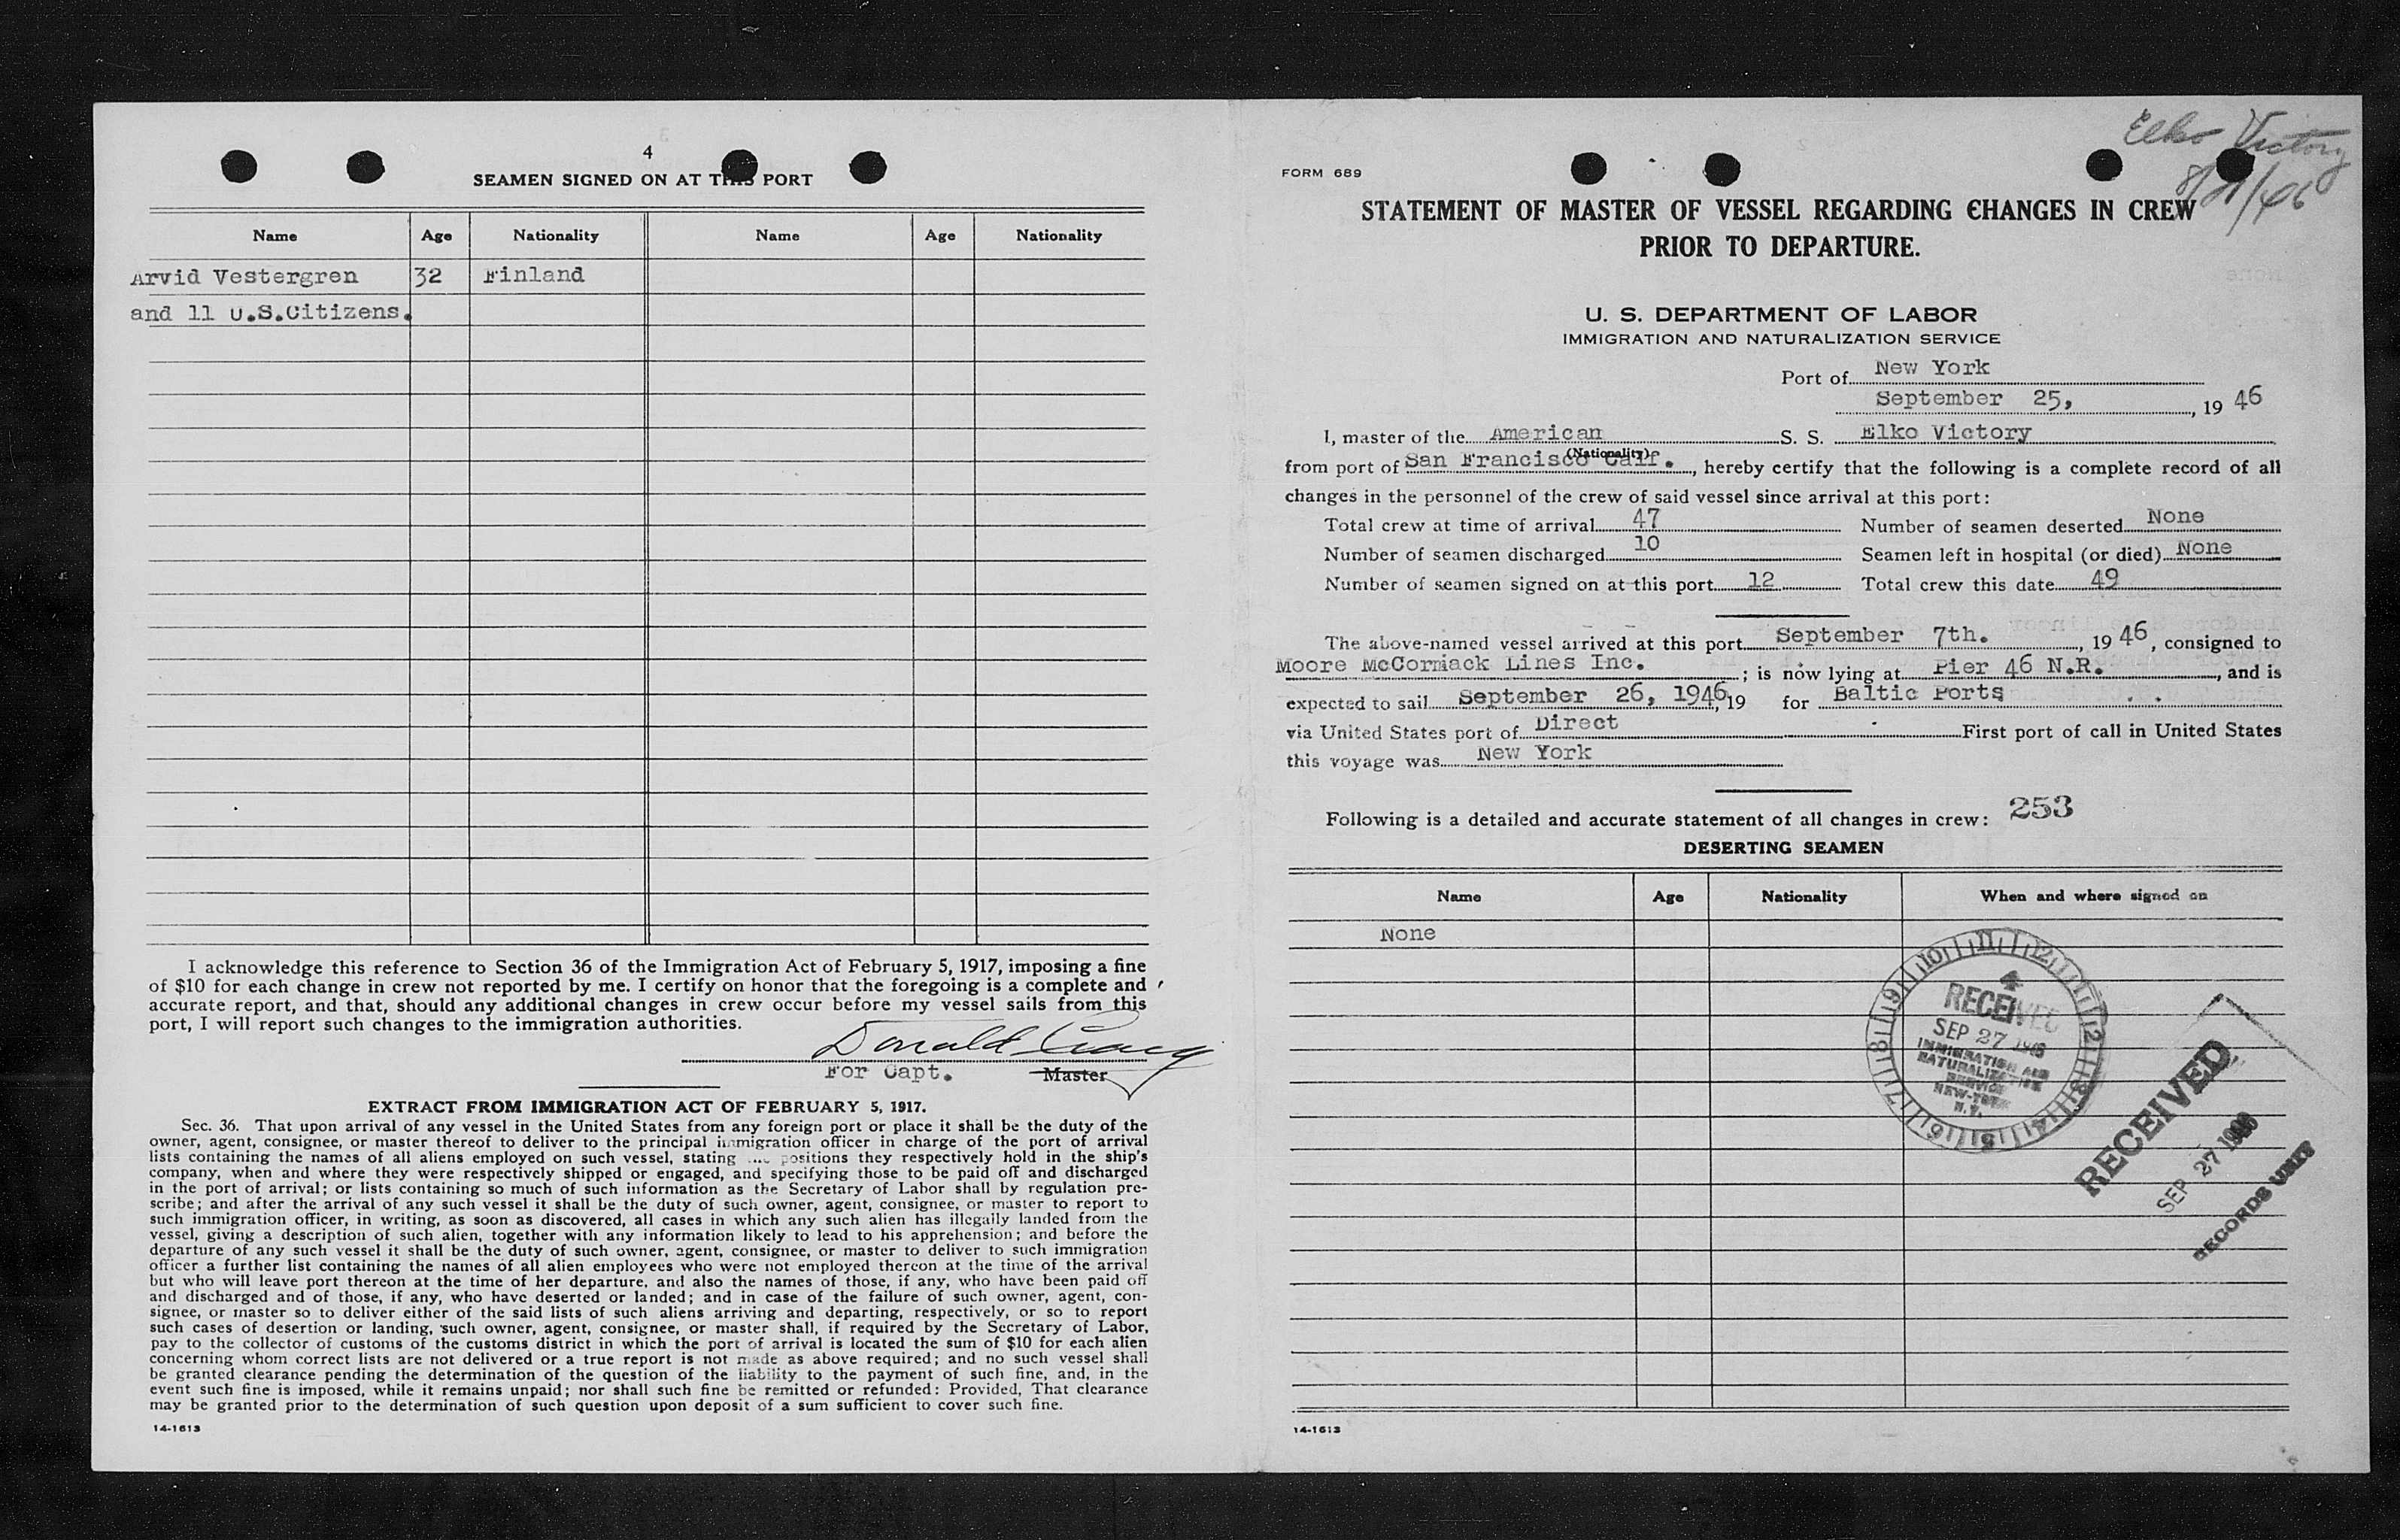 4
SEAMEN SIGNED ON AT THIS PORT
Name Age Nationality Name Age Nationality
Arvid Vestergren 32 Finland
and 11 U.S.Citizens.
I acknowledge this reference to Section 36 of the Immigration Act of February 5, 1917, imposing a fine
of $10 for each change in crew not reported by me. I certify on honor that the foregoing is a complete and
accurate report, and that, should any additional changes in crew occur before my vessel sails from this
port, I will report such changes to the immigration authorities.
Donald
For Capt. Master
EXTRACT FROM IMMIGRATION ACT OF FEBRUARY 5, 1917.
Sec. 36. That upon arrival of any vessel in the United States from any foreign port or place it shall be the duty of the
owner, agent, consignee, or master thereof to deliver to the principal immigration officer in charge of the port of arrival
lists containing the names of all aliens employed on such vessel, stating the positions they respectively hold in the ship's
company, when and where they were respectively shipped or engaged, and specifying those to be paid off and discharged
in the port of arrival; or lists containing so much of such information as the Secretary of Labor shall by regulation pre-
scribe; and after the arrival of any such vessel it shall be the duty of such owner, agent, consignee, or master to report to
such immigration officer, in writing, as soon as discovered, all cases in which any such alien has illegally landed from the
vessel, giving a description of such alien, together with any information likely to lead to his apprehension; and before the
departure of any such vessel it shall be the duty of such owner, agent, consignee, or master to deliver to such immigration
officer a further list containing the names of all alien employees who were not employed thereon at the time of the arrival
but who will leave port thereon at the time of her departure, and also the names of those, if any, who have been paid off
and discharged and of those, if any, who have deserted or landed; and in case of the failure of such owner, agent, con-
signee, or master so to deliver either of the said lists of such aliens arriving and departing, respectively, or so to report
such cases of desertion or landing, such owner, agent, consignee, or master shall, if required by the Secretary of Labor,
pay to the collector of customs of the customs district in which the port of arrival is located the sum of $10 for each alien
concerning whom correct lists are not delivered or a true report is not made as above required; and no such vessel shall
be granted clearance pending the determination of the question of the liability to the payment of such fine, and, in the
event such fine is imposed, while it remains unpaid; nor shall such fine be remitted or refunded: Provided, That clearance
may be granted prior to the determination of such question upon deposit of a sum sufficient to cover such fine.
14-1613
Elko Victory
FORM 689
STATEMENT OF MASTER OF VESSEL REGARDING CHANGES IN CREW
PRIOR TO DEPARTURE.
U. S. DEPARTMENT OF LABOR
IMMIGRATION AND NATURALIZATION SERVICE
Port of New York
September 25, , 19 46
I, master of the American S. S. Elko Victory
(Nationality)
from port of San Francisco Calf. , hereby certify that the following is a complete record of all
changes in the personnel of the crew of said vessel since arrival at this port:
Total crew at time of arrival 47 Number of seamen deserted None
Number of seamen discharged 10 Seamen left in hospital (or died) None
Number of seamen signed on at this port 12 Total crew this date 49
The above-named vessel arrived at this port September 7th. , 19 46, consigned to
Moore McCormack Lines Inc. ; is now lying at Pier 46 N.R. , and is
expected to sail September 26, 1946, 19 for Baltic Ports
via United States port of Direct First port of call in United States
this voyage was New York
Following is a detailed and accurate statement of all changes in crew: 253
DESERTING SEAMEN
Name Age Nationality When and where signed on
None
RECEIVED
SEP 27 1946
IMMIGRATION AND
NATURALIZATION
SERVICE
NEW-YORK
N.Y.
RECEIVED
SEP 27 1946
RECORDS UNIT
14-1613